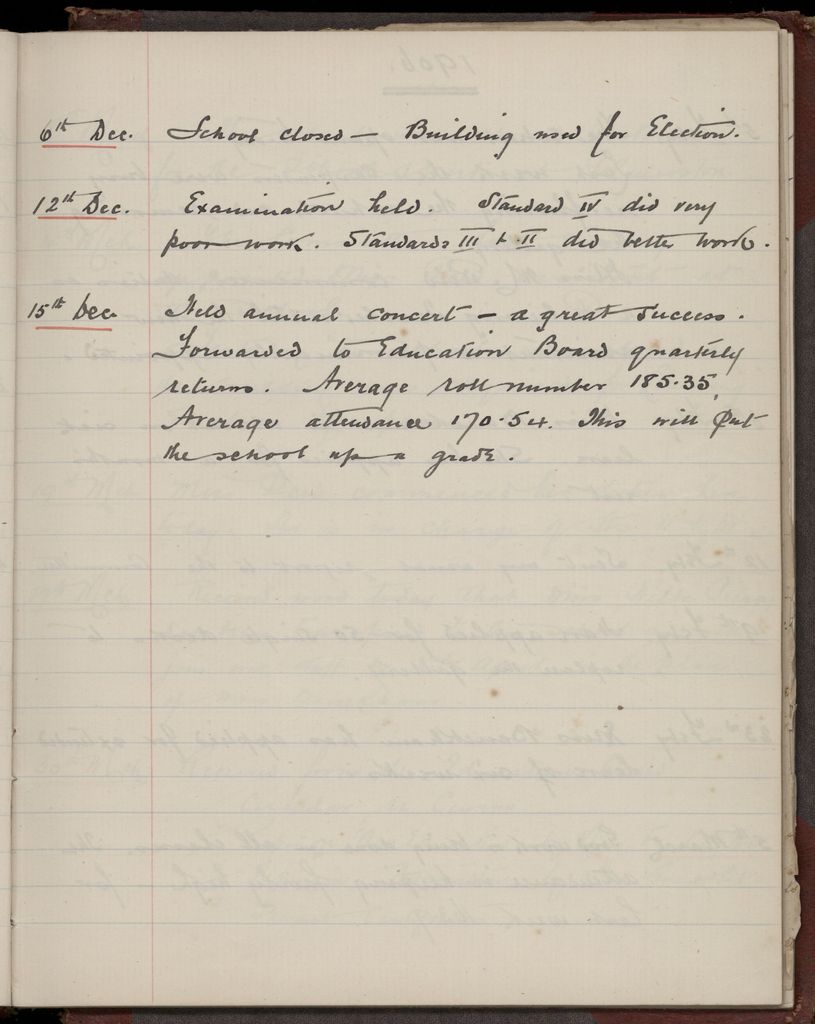 6th Dec. School closed — Building used for Election.
12th Dec. Examination held. Standard IV did very
poor work. Standards III & II did better work.
15th Dec. Held annual concert — a great success.
Forwarded to Education Board quarterly
returns. Average roll number 185.35,
Average attendance 170.54. This will put
the school up a grade.